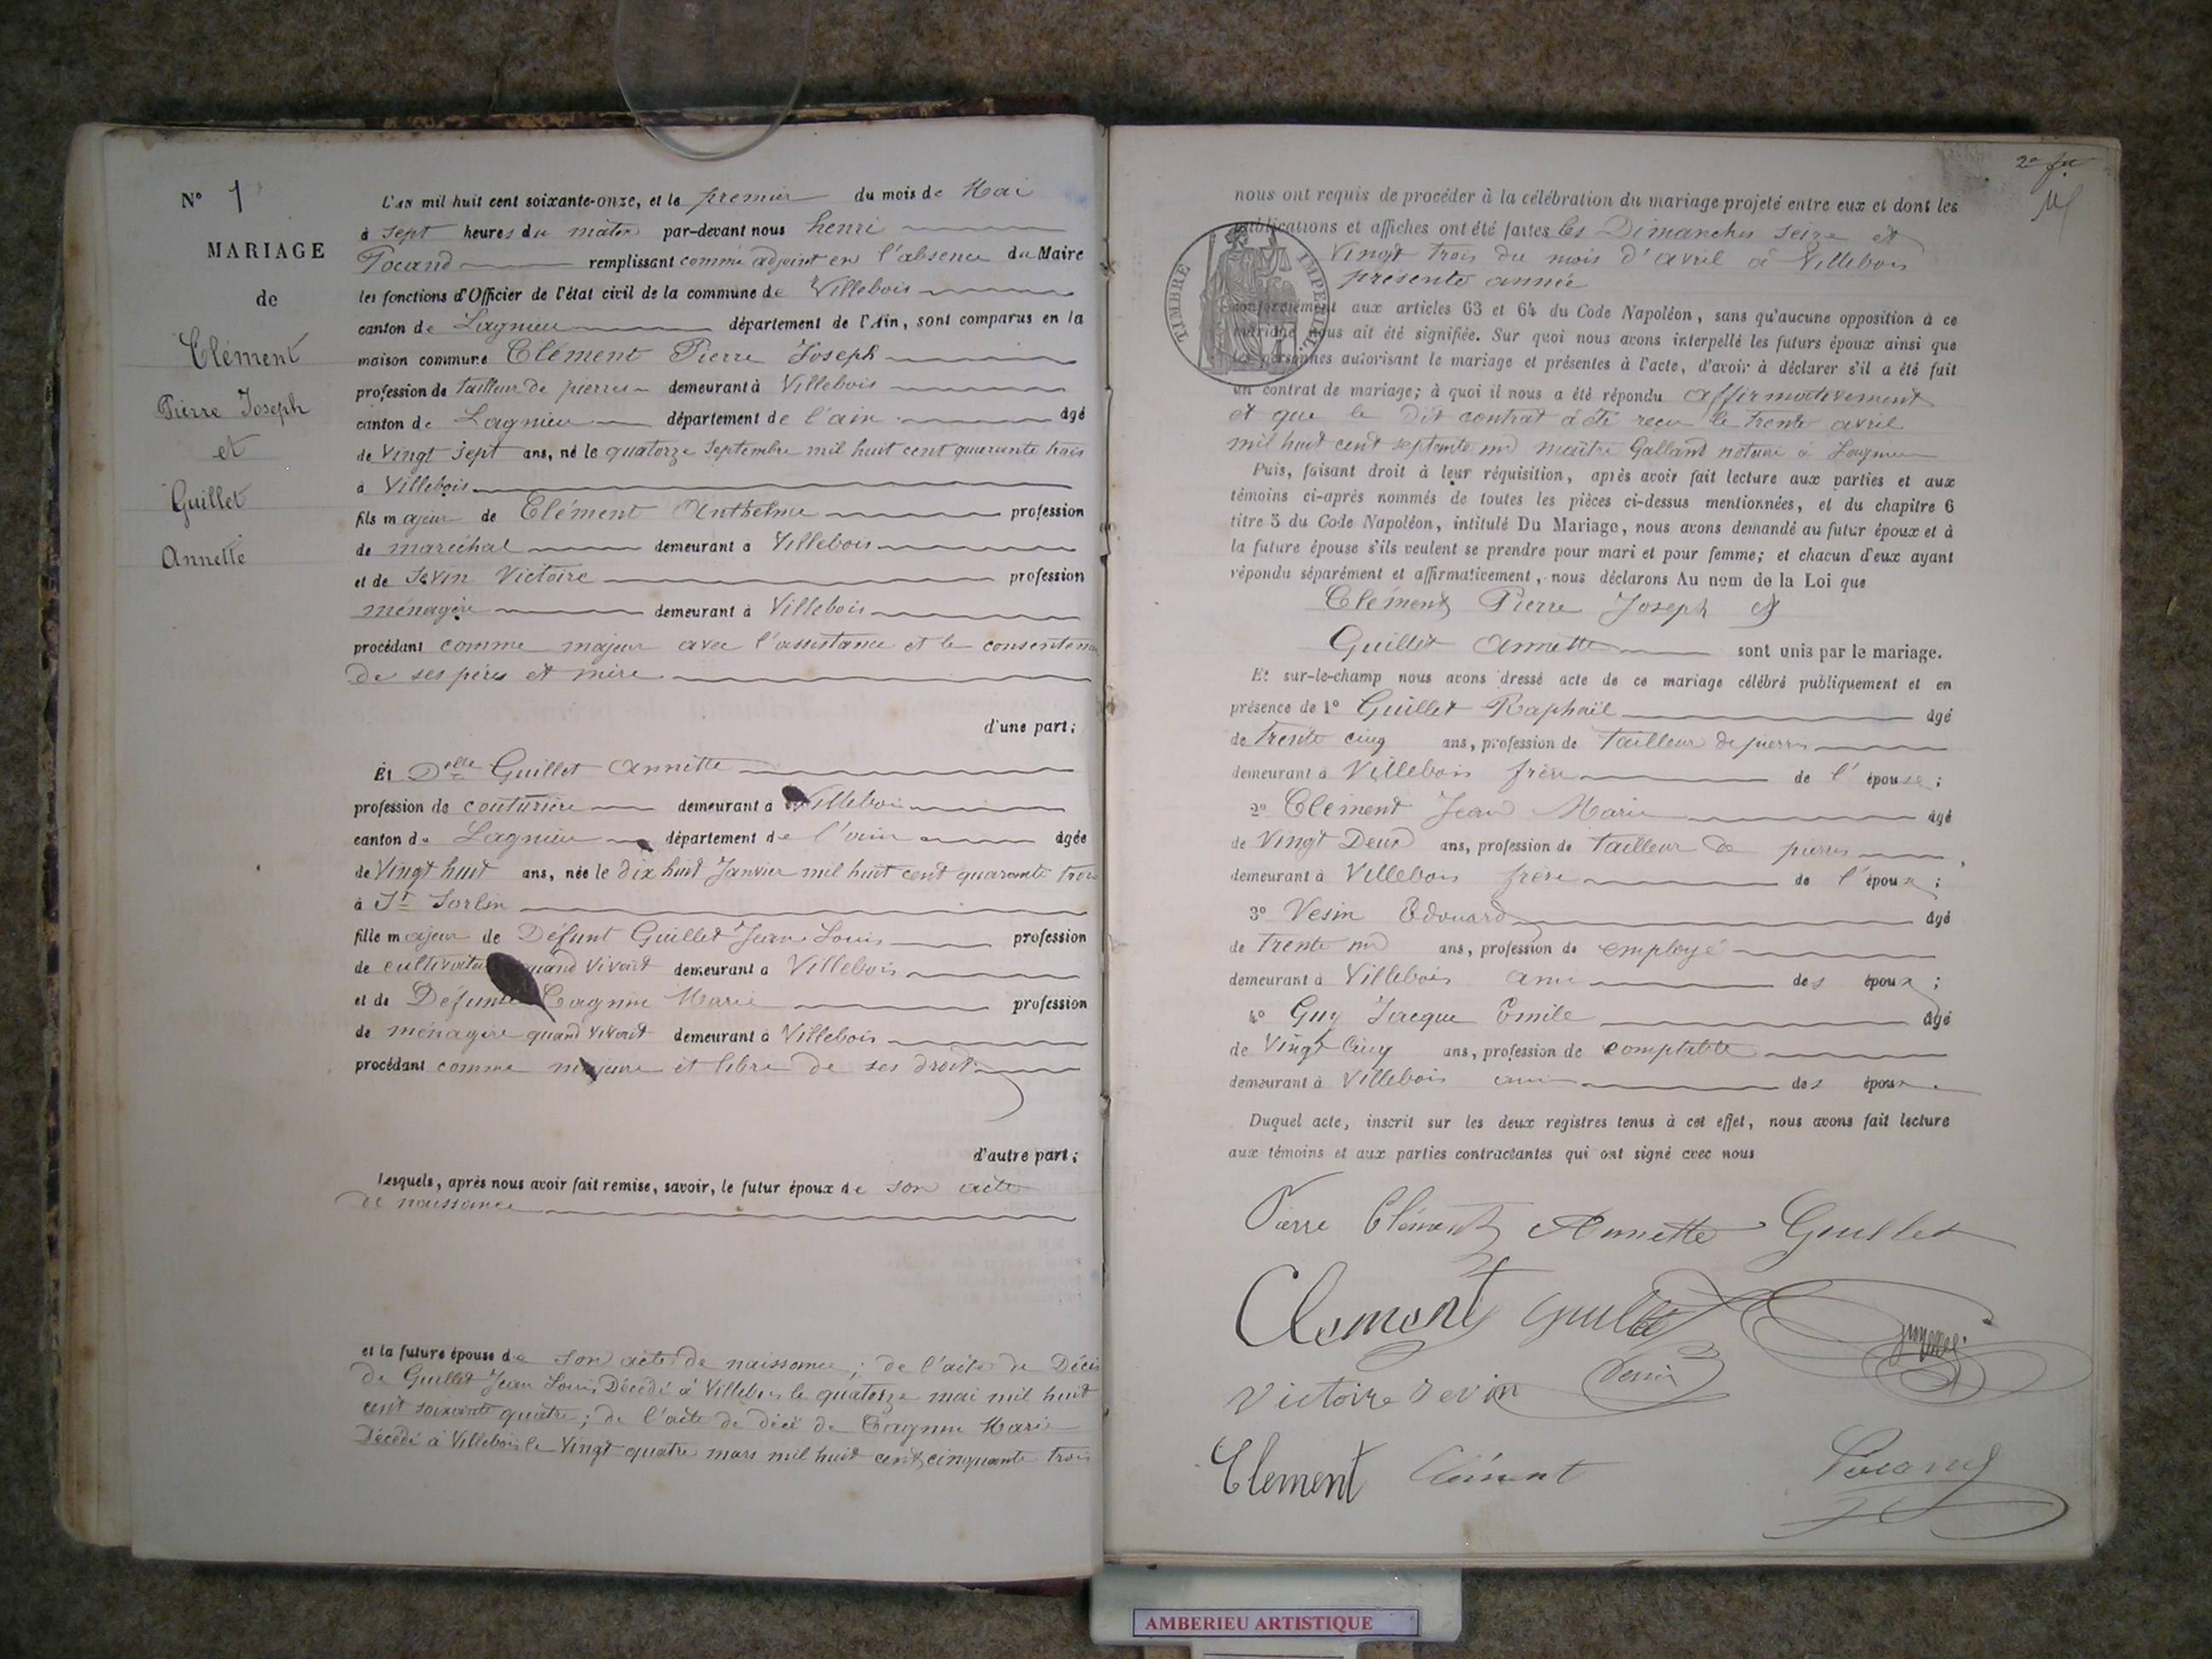 N° 1
MARIAGE
de
Clément
Pierre Joseph
et
Guillet
Annette
L'AN mil huit cent soixante-onze, et le premier du mois de Mai
à sept heures du matin par-devant nous henri
Pocand remplissant comme adjoint en l'absence du Maire
les fonctions d'Officier de l'état civil de la commune de Villebois
canton de Lagnieu département de l'Ain, sont comparus en la
maison commune Clément Pierre Joseph
profession de tailleur de pierres demeurant à Villebois
canton de Lagnieu département de l'ain âgé
de Vingt sept ans, né le quatorze Septembre mil huit cent quarante trois
à Villebois
fils majeur de Clément Anthelme profession
de maréchal demeurant à Villebois
et de Sevin Victoire profession
ménagère demeurant à Villebois
procédant comme majeur avec l'assistance et le consentem
de ses pères et mère
d'une part;
Et Delle Guillet Annette
profession de couturière demeurant à Villebois
canton de Lagnieu département de l'ain âgée
de Vingt huit ans, née le dix huit Janvier mil huit cent quarante trois
à St Sorlin
fille majeur de Défunt Guillet Jean Louis profession
de cultivateur quand Vivait demeurant à Villebois
et de Défunte Cagnin Marie profession
de ménagère quand Vivait demeurant à Villebois
procédant comme majeure et libre de ses droits
d'autre part;
Lesquels, après nous avoir fait remise, savoir, le futur époux de son acte
de naissance
et la future épouse de son acte de naissance; de l'acte de Décès
de Guillet Jean Louis Décédé à Villebois le quatorze mai mil huit
cent soixante quatre; de l'acte de décè de Cagnin Marie
Décédé à Villebois le Vingt quatre mars mil huit cent cinquante trois
nous ont requis de procéder à la célébration du mariage projeté entre eux et dont les
publications et affiches ont été faites les Dimanches seize et
Vingt trois du mois d'avril à Villebois
présente année
TIMBRE IMPERIAL
conformément aux articles 63 et 64 du Code Napoléon, sans qu'aucune opposition à ce
mariage nous ait été signifiée. Sur quoi nous avons interpellé les futurs époux ainsi que
les personnes autorisant le mariage et présentes à l'acte, d'avoir à déclarer s'il a été fait
un contrat de mariage; à quoi il nous a été répondu affirmativement
et que le dit contrat a été reçu le trente avril
mil huit cent septante un maître Galland notaire à Lagnieu
Puis, faisant droit à leur réquisition, après avoir fait lecture aux parties et aux
témoins ci-après nommés de toutes les pièces ci-dessus mentionnées, et du chapitre 6
titre 5 du Code Napoléon, intitulé Du Mariage, nous avons demandé au futur époux et à
la future épouse s'ils veulent se prendre pour mari et pour femme; et chacun d'eux ayant
répondu séparément et affirmativement, nous déclarons Au nom de la Loi que
Clément Pierre Joseph et
Guillet Annette sont unis par le mariage.
Et sur-le-champ nous avons dressé acte de ce mariage célébré publiquement et en
présence de 1° Guillet Raphaël âgé
de Trente cinq ans, profession de Tailleur de pierres
demeurant à Villebois frère de l'épouse;
2° Clément Jean Marie âgé
de Vingt Deux ans, profession de tailleur de pierres
demeurant à Villebois frère de l'époux;
3° Vesin Edouard âgé
de Trente un ans, profession de employé
demeurant à Villebois ami des époux;
4° Guy Jacque Emile âgé
de Vingt Cinq ans, profession de comptable
demeurant à Villebois ami des époux.
Duquel acte, inscrit sur les deux registres tenus à cet effet, nous avons fait lecture
aux témoins et aux parties contractantes qui ont signé avec nous
Pierre Clément Annette Guillet
Clement Guillet
Victoire Sevin Vesin
Clement Clément Pocand
AMBERIEU ARTISTIQUE